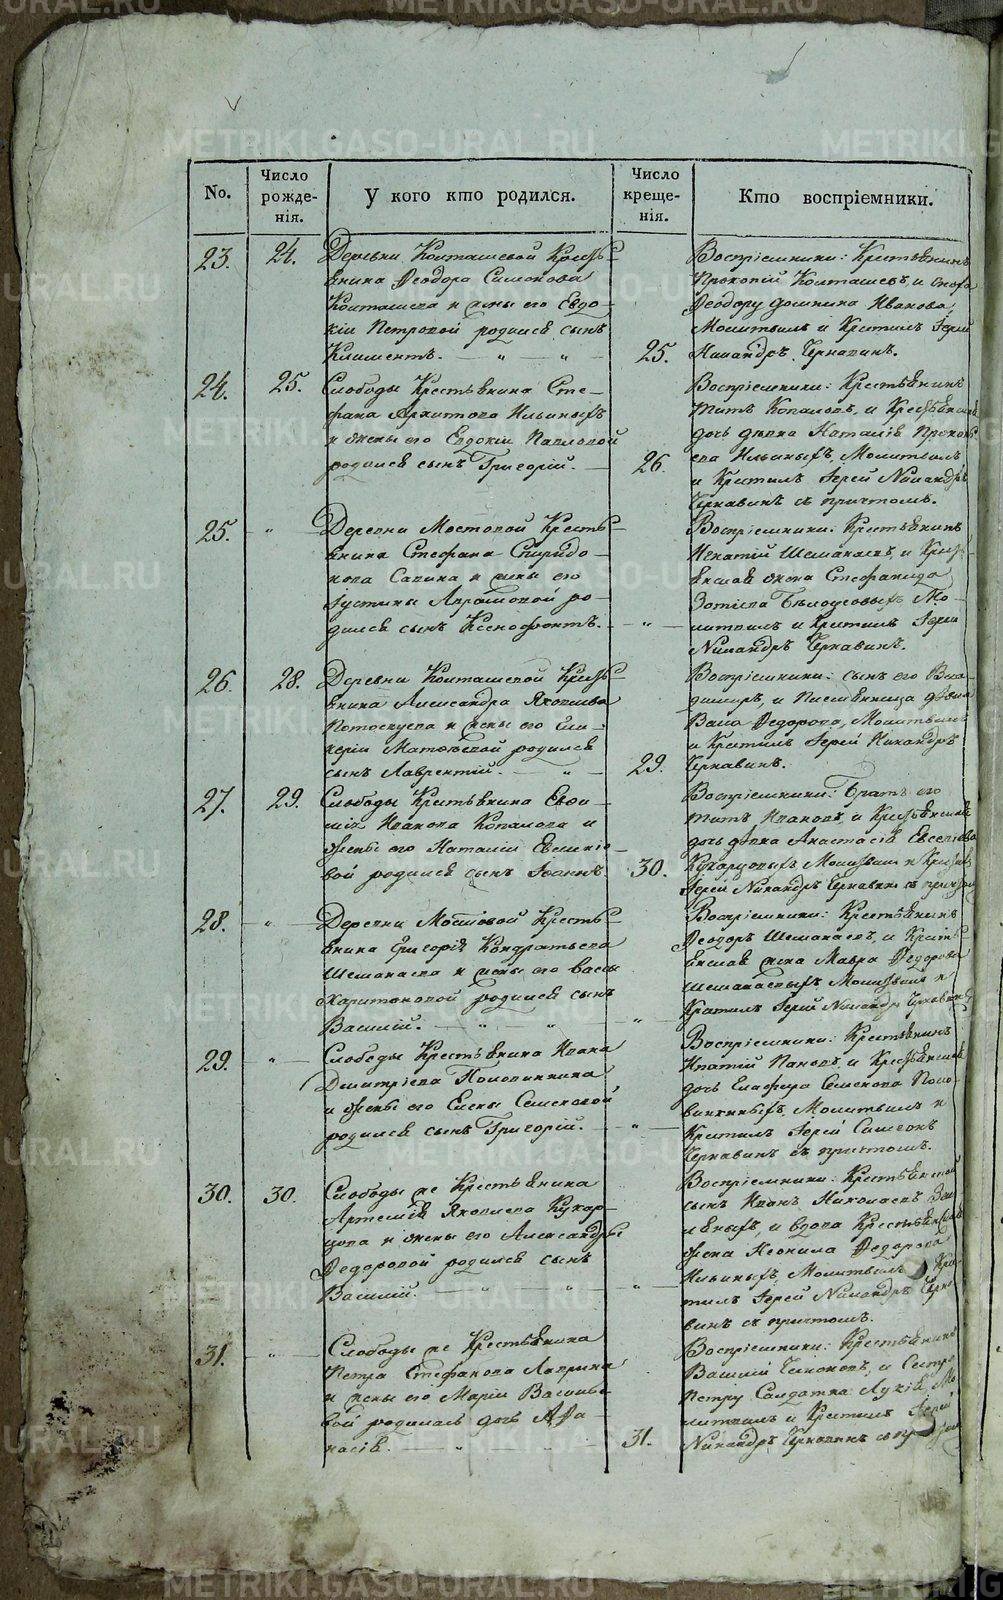 No.
Число рожде-
нія.
У кого кто родился.
Число креще-
нія.
Кто воспріемники.
23.
24.
Деревни Колташевой Кресть-
янина Ѳеодора Симонова
Колташева и жены его Евдо-
кіи Петровой родился сынъ
Климентъ.
25.
Воспріемники: Крестьянинъ
Прокопій Колташевъ, и сноха
Ѳеодору домнина Иванова,
Молитвилъ и Крестилъ Іерей
Никандръ Чернавинъ.
24.
25.
Слободы Крестьянина Сте-
фана Архипова Ильиныхъ
и жены его Евдокіи Павловой
родился сынъ Григорій.
26.
Воспріемники: Крестьянинъ
Титъ Копаловъ, и Крестьянская
дочь дѣвка Наталія Прокопь
ева Ильиныхъ, Молитвилъ
и Крестилъ Іерей Никандръ
Чернавинъ съ причтомъ.
25.
"
Деревни Мостовой Кресть-
янина Стефана Спиридо-
нова Савина и жены его
Іустины Авраамовой ро-
дился сынъ Ксенофонтъ.
"
Воспріемники: Крестьянинъ
Игнатій Шеманаевъ, и Кресть-
янская жена Стефанида
Зотіева Бѣлоусовыхъ Мо-
литвилъ и Крестилъ Іерей
Никандръ Чернавинъ.
26.
28.
Деревни Колташевой Кресть-
янина Александра Яковлева
Потоскуева и жены его Гли-
керіи Матвѣевой родился
сынъ Лаврентій.
29.
Воспріемники: сынъ его Вла-
димиръ, и
Ѳедорова, Молитвилъ
и Крестилъ Іерей Никандръ
Чернавинъ.
27.
29.
Слободы Крестьянина Евѳи-
мія Иванова Копалова и
жены его Наталіи
вой родился сынъ Іоаннъ.
30.
Воспріемники: Братъ его
Титъ Ивановъ, и Крестьянская
дочь дѣвка Анастасія Евсевіева
Кукарцовыхъ Молитвилъ и Крестилъ
Іерей Никандръ Чернавинъ съ причтомъ
28.
"
Деревни Мостовой Кресть-
янина Григорія Кондратьева
Шеманаева и жены его Вассы
Харитоновой родился сынъ
Василій.
"
Воспріемники: Крестьянинъ
Ѳеодоръ Шеманаевъ, и Кресть-
янская жена Мавра Ѳедорова
Шеманаевыхъ Молитвилъ и
Крестилъ Іерей Никандръ Чернавинъ
29.
"
Слободы Крестьянина Ивана
Дмитріева Половинкина
и жены его Елены Семеновой
родился сынъ Григорій.
"
Воспріемники: Крестьянинъ
Ипатій Пановъ, и Крестьянская
дочь Гликерія Семенова Поло-
винкиныхъ, Молитвилъ и
Крестилъ Іерей Симеонъ
Чернавинъ съ причтомъ.
30.
30.
Слободы же Крестьянина
Артемія Яковлева Кукар-
цова и жены его Александры
Ѳедоровой родился сынъ
Василій.
"
Воспріемники: Крестьянской
сынъ Иванъ Николаевъ
и вдова Крестьянская
жена Неонила Ѳедорова
Ильиныхъ, Молитвилъ и Кре
стилъ Іерей Никандръ Черна
винъ съ причтомъ.
31.
"
Слободы же Крестьянина
Петра Стефанова Лаврина
и жены его Маріи Василье-
вой родилась дочь Аѳа-
насія.
31.
Воспріемники: Крестьянинъ
Василій и Сестра
Петру Салдатка Лукія, Мо
литвилъ и Крестилъ Іерей
Никандръ Чернавинъ
METRIKI.GASO-URAL.RU